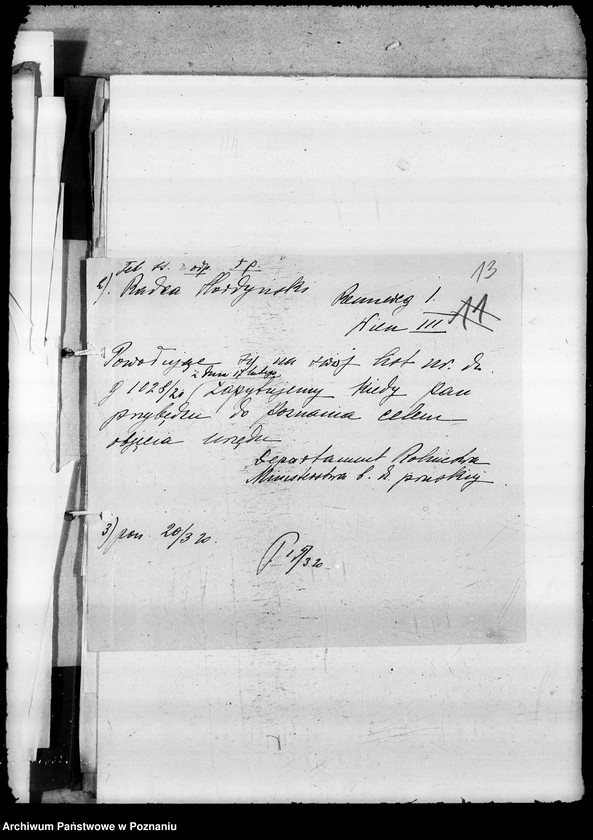 13
2). Radca Hordyński
Rennweg 1.
Wien III 11
Powołując się na swój list nr. dz.
z dnia 17 lutego
g 1028/20 zapytujemy kiedy pan
przybędzie do Poznania celem
objęcia urzędu
Departament Rolnictwa
Ministerstwa b. dz. pruskiej
3) pon 20/3 20
19/3.20
Archiwum Państwowe w Poznaniu